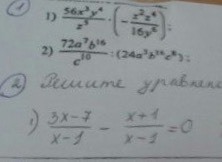 ① 1) \frac{56x^3y^4}{z^5} \cdot \left(-\frac{x^2z^4}{16y^6}\right);
2) \frac{72a^7b^{16}}{c^{10}} : (24a^3b^{16}c^8);
② Решите уравнение
1) \frac{3x-7}{x-1} - \frac{x+1}{x-1} = 0